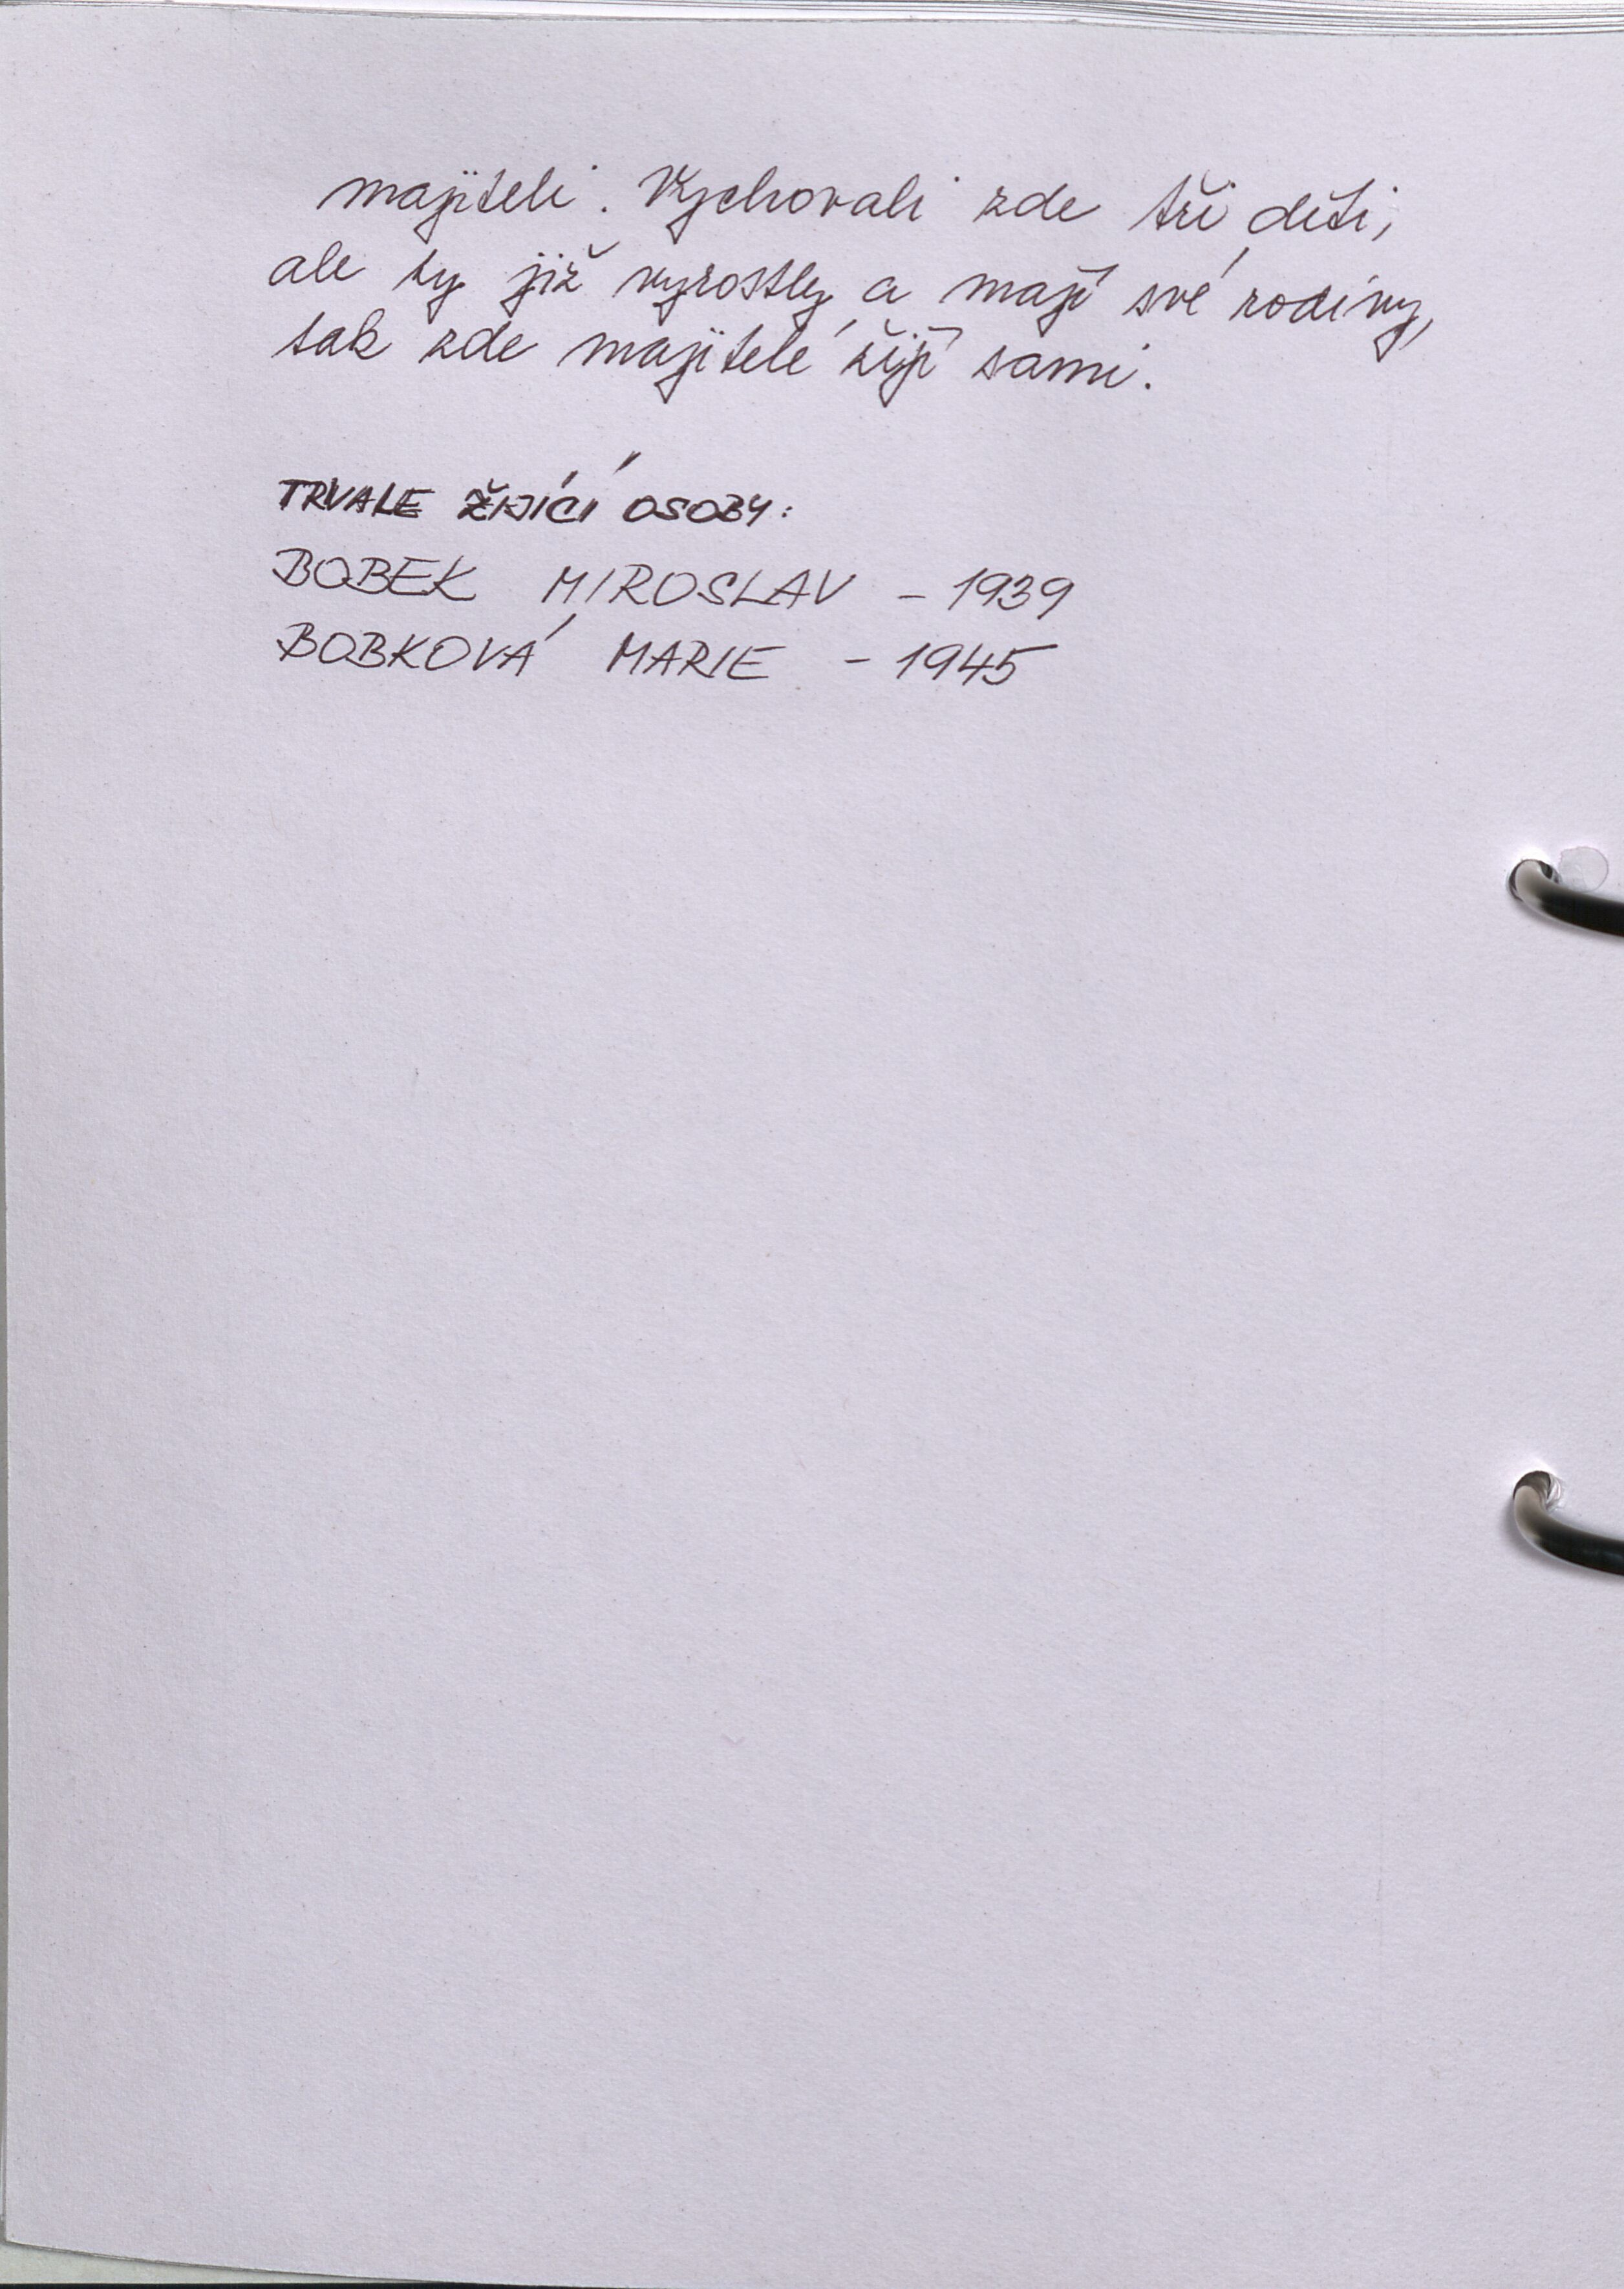 majiteli. Vychovali zde tři děti,
ale ty již vyrostly a mají své rodiny,
tak zde majitelé žijí sami.
TRVALE ŽIJÍCÍ OSOBY:
BOBEK MIROSLAV - 1939
BOBKOVÁ MARIE - 1945